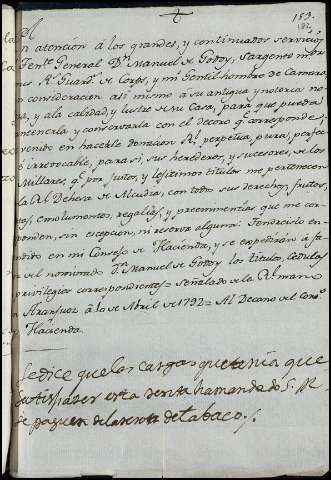 153.
182
En atención á los grandes, y continuados servicios
Tente. General Dn. Manuel de Godoy, Sargento mor.
Rs. Guards. de Corps, y mi Gentil hombre de Camara
consideracion asi mismo á su antigua y notoria no
za, y ala calidad, y lustre de su Casa, para que pueda
mantenerla y conservarla con el decoro qe. corresponde;
venido en hacerle donacion Rl. perpetua, pura, perfec
é irrevocable, para si, sus herederos, y sucesores, de los
Millares, qe. por justos, y lexitimos titulos me pertenecen
la Rl. Dehesa de Alcudia, con todos sus derechos, frutos,
emolumentos, regalias, y preeminencias que me cor
ponden, sin escepcion, ni reserva alguna. Tendrase en
dido en mi Consejo de Hacienda, y se expedirán á fa
del nominado Dn. Manuel de Godoy los titulos, Cedulas
privilegios correspondientes = Señalado de la Rl. mano
Aranjuez á de Abril de 1792 = Al Decano del Cons.o
Hacienda.
Se dice que las cargas que tenia que
satisfacer esta renta ha mandado S. M.
se paguen de la renta de tabaco.